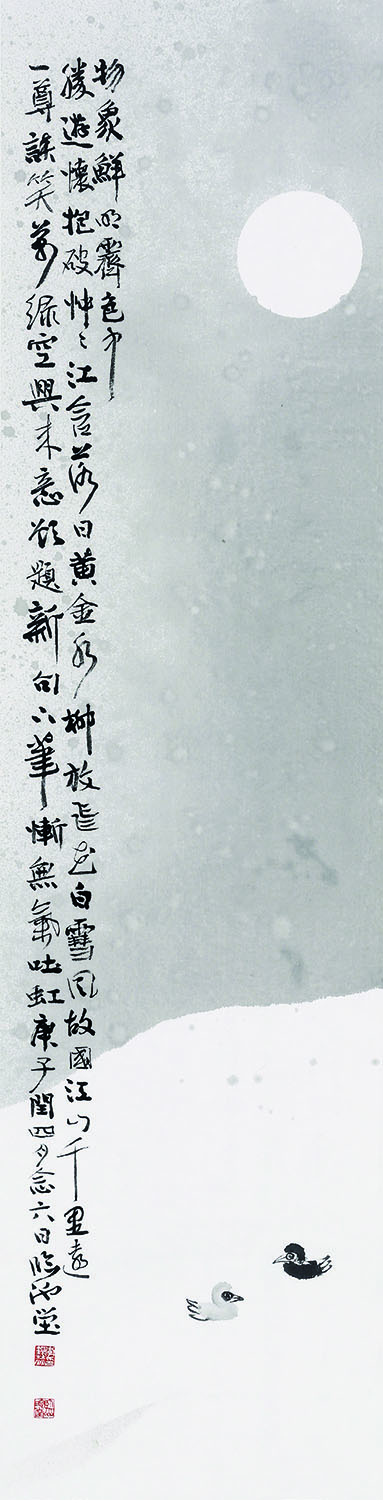 物象鮮明霽色中
勝遊懷抱破忡〻江含落日黄金水柳放飛花白雪風故國江山千里遠
一尊談笑萬緣空興來意欲題新句下筆慚無氣吐虹庚子閏四月念六日臨池堂